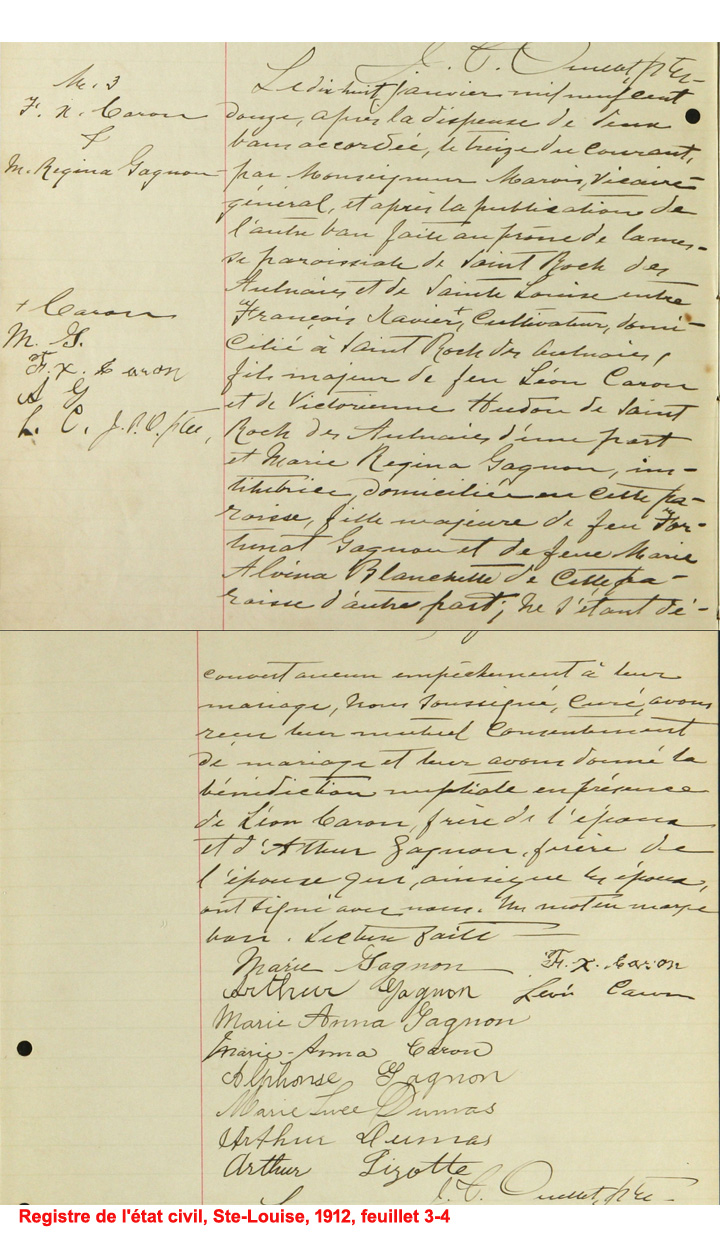 J. C. Ouellet, ptre
M. 3
F. X. Caron
&
M. Regina Gagnon
+ Caron
M. G.
F. X. Caron
A G
L. C. J.C.O. ptre,
Le dix huit janvier mil neuf cent
douze, après la dispense de deux
bans accordée, le treize du courant,
par Monseigneur Marois, Vicaire
général, et après la publication de
l'autre ban faite au prône de la mes-
se paroissiale de Saint Roch des
Aulnaies et de Sainte Louise entre
François Xavier +, Cultivateur, domi-
cilié à Saint Roch des Aulnaies,
fils majeur de feu Léon Caron
et de Victorienne Hudon de Saint
Roch des Aulnaies d'une part
et Marie Regina Gagnon, ins-
titutrice, domiciliée en cette pa-
roisse, fille majeure de feu For-
tunat Gagnon et de feue Marie
Alvina Blanchette de cette pa-
roisse d'autre part; ne s'étant dé-
couvert aucun empêchement à leur
mariage, Nous soussigné, Curé, avons
reçu leur mutuel consentement
de mariage et leur avons donné la
bénédiction nuptiale en présence
de Léon Caron, frère de l'époux
et d'Arthur Gagnon, frère de
l'épouse qui, ainsi que les époux,
ont signé avec nous. Un mot en marge
bon. Lecture faite
Marie Gagnon F. X. Caron
Arthur Gagnon Léon Caron
Marie Anna Gagnon
Marie-Anna Caron
Alphonse Gagnon
Marie Luce Dumas
Arthur Dumas
Arthur Lizotte
J. C. Ouellet, ptre
Registre de l'état civil, Ste-Louise, 1912, feuillet 3-4